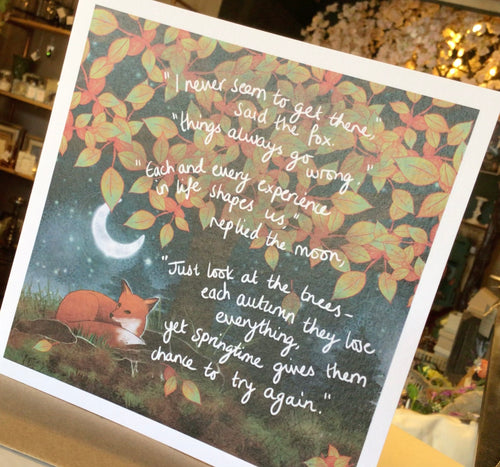 "I never seem to get there,"
said the fox.
"things always go wrong."
"Each and every experience
in life shapes us,"
replied the moon,
"Just look at the trees-
each autumn they lose
everything,
yet springtime gives them
chance to try again."